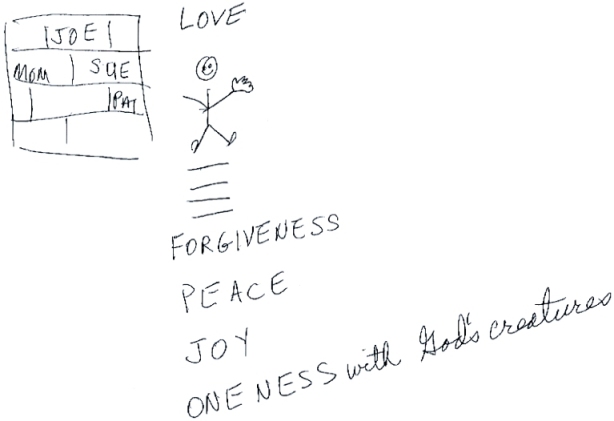 LOVE
JOE
MOM SUE
PAT
FORGIVENESS
PEACE
JOY
ONENESS with God's creatures